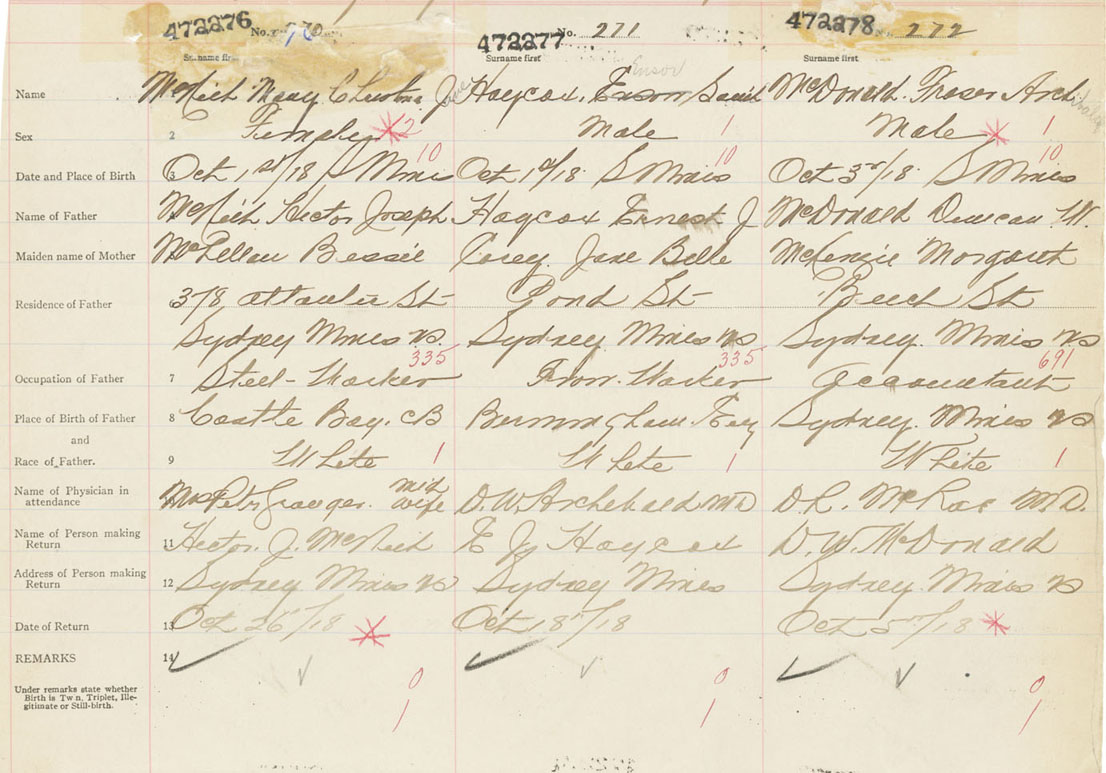 472276 No. 270 472277 No. 271 472278 272
Surname first Surname first Surname first
Ensor
Name 1 McNeil Mary Christina Jane Haycox, Enson David McDonald. Fraser Archibald
Sex 2 Female * 2 Male 1 Male * 1
10 10 10
Date and Place of Birth 3 Oct 1st/18 S Mines Oct 1st/18 S Mines Oct 3rd/18 S Mines
Name of Father McNeil Hector Joseph Haycox Ernest J McDonald Duncan W.
Maiden name of Mother McLellan Bessie Carey. Jane Belle McKenzie Margaret
Residence of Father 6 378 Atlantic St Pond St Beech St
Sydney Mines NS. Sydney Mines NS Sydney. Mines NS
335 335 691
Occupation of Father 7 Steel-Worker Iron. Worker Accountant
Place of Birth of Father 8 Castle Bay. CB Bermingham. Eng Sydney. Mines NS
and
Race of Father. 9 White 1 White 1 White 1
Name of Physician in Mrs Petr Granger. Mid wife D. W. Archibald MD D. L. McRae M.D.
attendance
Name of Person making 11 Hector. J. McNeil E J Haycox D. W. McDonald
Return
Address of Person making 12 Sydney Mines NS Sydney Mines Sydney. Mines NS
Return
Date of Return 13 Oct 26/18 * Oct 18/18 Oct 5/18 *
REMARKS 14
Under remarks state whether 0 0 0
Birth is Tw n, Triplet, Ille-
gitimate or Still-birth. 1 1 1